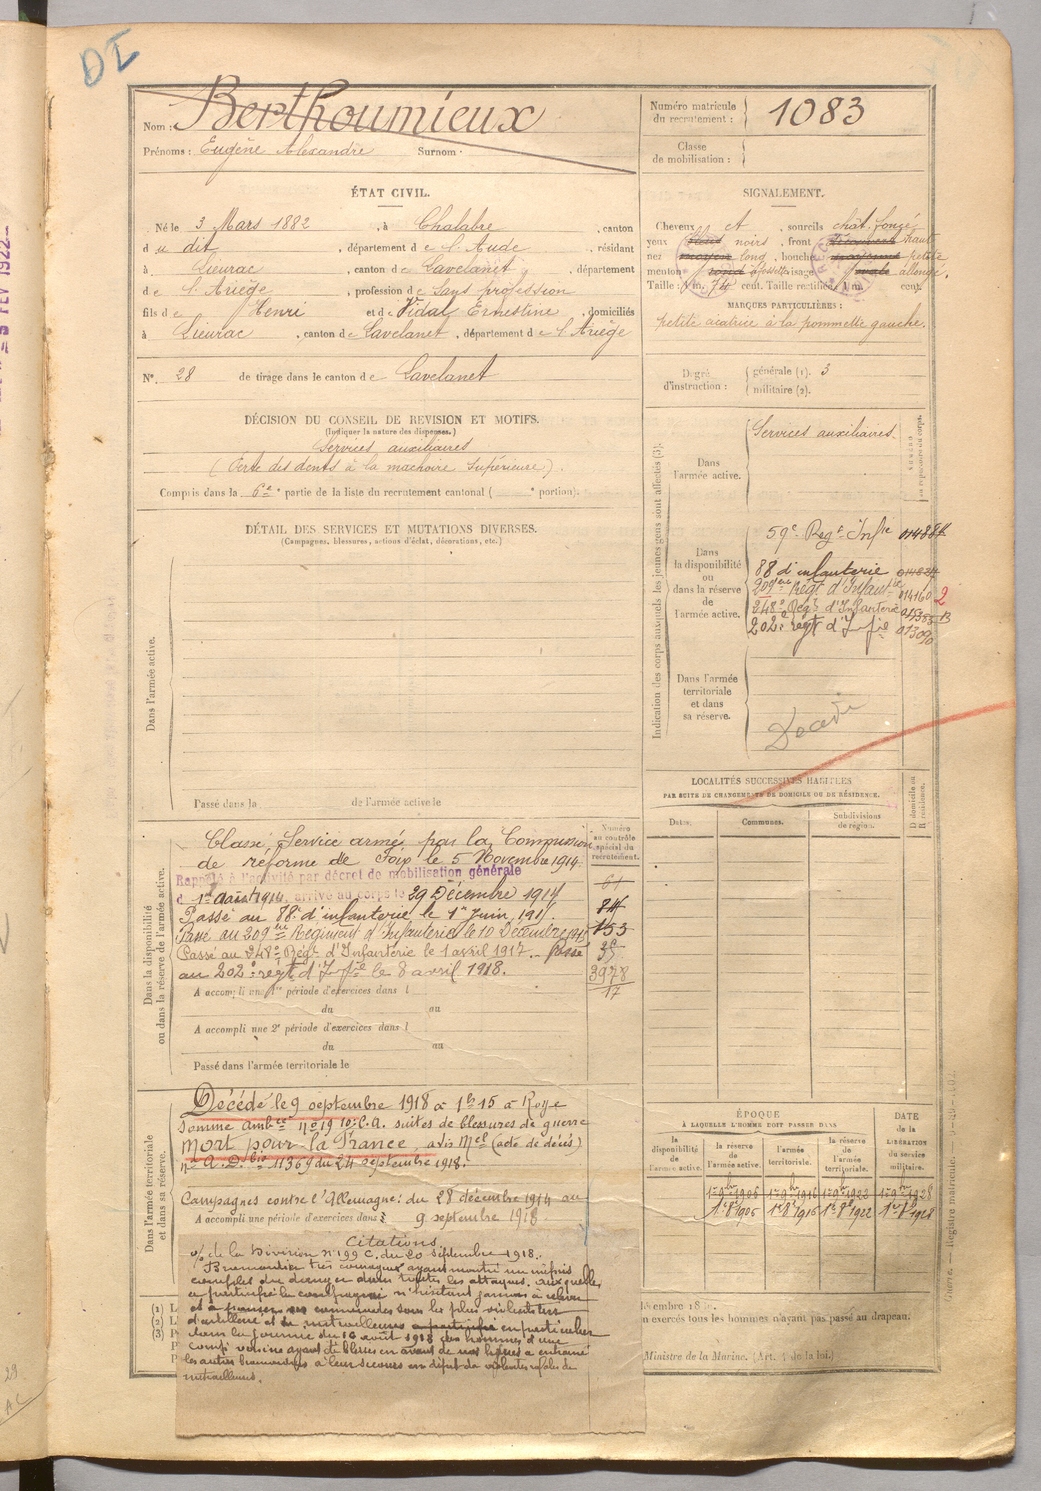 DI
Nom : Berthoumieux
Prénoms : Eugène Alexandre Surnom :
Numéro matricule du recrutement : 1083
Classe de mobilisation :
ÉTAT CIVIL.
Né le 3 Mars 1882, à Chalabre, canton
du dit, département de l'Aude, résidant
à Lieurac, canton de Lavelanet, département
de l'Ariège, profession de Sans profession
fils de Henri et de Vidal Ernestine, domiciliés
à Lieurac, canton de Lavelanet, département de l'Ariège
N° 28 de tirage dans le canton de Lavelanet
SIGNALEMENT.
Cheveux et, sourcils chât. foncé
yeux noirs, front haut
nez moyen long, bouche moyenne petite
menton rond à fossette visage ovale allongé,
Taille : 1m. 74 cent. Taille rectifiée : 1m. cent.
MARQUES PARTICULIÈRES :
petite cicatrice à la pommette gauche
Degré d'instruction : générale (1). 3
militaire (2).
DÉCISION DU CONSEIL DE REVISION ET MOTIFS.
(Indiquer la nature des dispenses.)
Services auxiliaires
(Perte des dents à la machoire supérieure).
Compris dans la 6e partie de la liste du recrutement cantonal ( portion).
DÉTAIL DES SERVICES ET MUTATIONS DIVERSES.
(Campagnes, blessures, actions d'éclat, décorations, etc.)
Dans l'armée active.
Passé dans la de l'armée active le
Indication des corps auxquels les jeunes gens sont affectés (3).
Dans l'armée active.
Services auxiliaires.
Dans la disponibilité ou dans la réserve de l'armée active.
59e Regt Infie
88 d'infanterie
209ème Régt d'Infantrie 014160
248e Régt d'Infanterie
202e régt d'Infie 013090
2
Dans l'armée territoriale et dans sa réserve.
Décédé
LOCALITÉS SUCCESSIVES HABITÉES
PAR SUITE DE CHANGEMENTS DE DOMICILE OU DE RÉSIDENCE.
Dates.
Communes.
Subdivisions de région.
D domicile ou R résidence.
Dans la disponibilité ou dans la réserve de l'armée active.
Numéro au contrôle spécial du recrutement.
Classé Service armé par la Commission
de réforme de Foix le 5 Novembre 1914.
Rappelé à l'activité par décret de mobilisation générale
du 1er Août 1914, arrivé au corps le 29 Décembre 1914
Passé au 88e d'infanterie le 1er Juin 191
Passé au 209ème Régiment d'Infanterie le 10 Décembre 1915
Passé au 248e Régt d'Infanterie le 1 avril 1917. - Passé
au 202e régt d'Infie le 8 avril 1918.
61
153
3978
17
A accompli une 1re période d'exercices dans l
du au
A accompli une 2e période d'exercices dans l
du au
Passé dans l'armée territoriale le
Dans l'armée territoriale et dans sa réserve.
Décédé le 9 septembre 1918 à 1h15 à Roye
Somme ambce n° 19 10e C.A. suites de blessures de guerre
Mort pour la France, avis Mel (acte de décès)
n° A.D. 11369 du 24 septembre 1918.
Campagnes contre l'Allemagne: du 28 décembre 1914 au
A accompli une période d'exercices dans l 9 septembre 1918.
ÉPOQUE
À LAQUELLE L'HOMME DOIT PASSER DANS
la disponibilité de l'armée active.
la réserve de l'armée active.
l'armée territoriale.
la réserve de l'armée territoriale.
DATE de la LIBÉRATION du service militaire.
1er 9bre 1906 1er 9bre 1916 1er 9bre 1922 1er 9bre 1928
1er 8bre 1905 1er 8bre 1916 1er 8bre 1922 1er 8bre 1928
Citations
de la Division n° 199 C. du 20 septembre 1918.
Brancardier très courageux ayant montré un mépris
complet du danger dans toutes les attaques auxquelles
a participé la compagnie n'hésitant jamais à relever
et à panser ses camarades sous les plus violents tirs
d'artillerie et de mitrailleuses en particulier
dans la journée du 16 août 1918 des hommes d'une
compie voisine ayant été blessés en avant de nos lignes a entrainé
les autres brancardiers à leur secours en dépit de violentes rafales de
mitrailleuses.
n exercés tous les hommes n'ayant pas passé au drapeau.
Ministre de la Marine. (Art. 4 de la loi.)
Registre matricule.